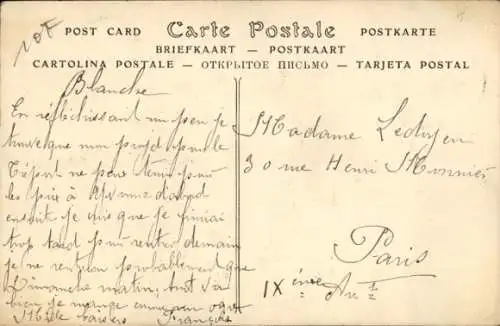 10F
POST CARD Carte Postale POSTKARTE
BRIEFKAART — POSTKAART
CARTOLINA POSTALE — ОТКРЫТОЕ ПИСЬМО — TARJETA POSTAL
Blanche
En réfléchissant un peu je
trouve que mon projet pour le
ne pas
les prix à d'abord
ensuite je vois que je finirai
trop tard pour rentrer demain
je ne rentrerai probablement que
Dimanche matin, tout va
bien je mange comme un ogre
Mille baisers François
Madame Ledoyen
30 rue Henri Monnier
Paris
IX ème Arrt